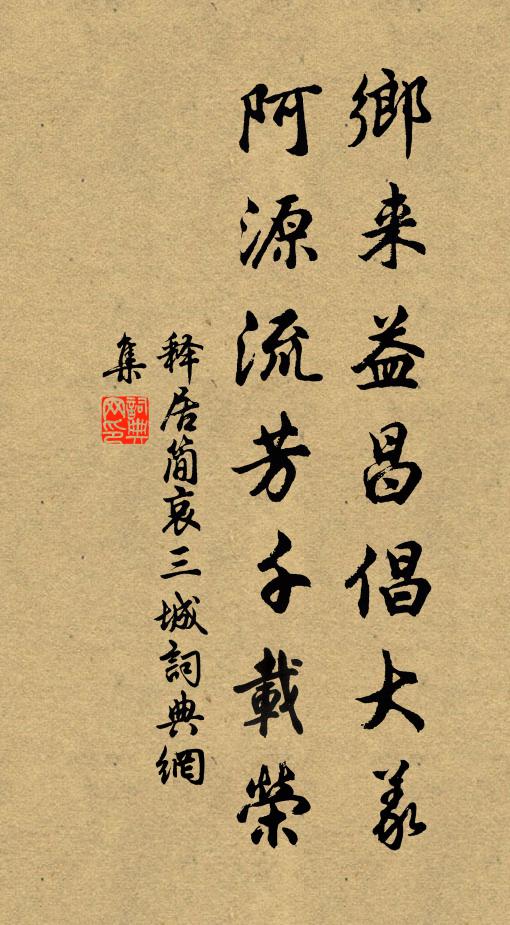 鄉来益昌倡大義
阿源流芳千載榮
释居簡哀三城詞典網
集
詞典網印